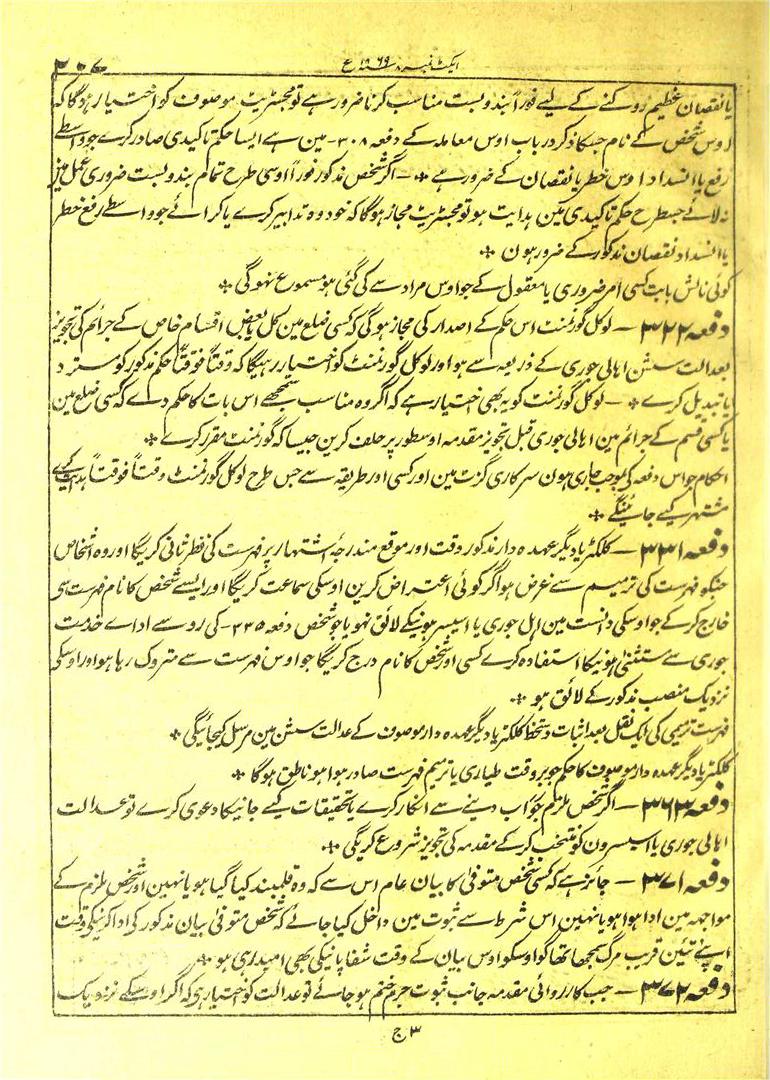 ایکٹ نمبر ۸ سنہ ۱۸۶۹ ع
یا نقصان عظیم روکنے کے لیے فوراً بندوبست مناسب کرنا ضرور ہے تو مجسٹریٹ موصوف کو اختیار ہوگا کہ
اوس شخص کے نام جسکا ذکر درباب اوس معاملہ کے دفعہ ۳۰۸- مین ہے ایسا حکم تاکیدی صادر کرے جو واسطے
رفع یا انسداد اوس خطر یا نقصان کے ضرور ہے ٭ – اگر شخص مذکور فوراً اوسی طرح تمام بندوبست ضروری عمل مین
نہ لائے جسطرح حکم تاکیدی مین ہدایت ہو تو مجسٹریٹ مجاز ہوگا کہ خود وہ تدابیر کرے یا کرائے جو واسطے رفع خطر
یا انسداد نقصان مذکور کے ضرور ہون ٭
کوئی نالش بابت کسی امر ضروری یا معقول کے جو اوس مراد سے کی گئی ہو مسموع نہوگی ٭
دفعہ ۳۲۲ — لوکل گورنمنٹ اس حکم کے اصدار کی مجاز ہوگی کہ کسی ضلع مین کل یا بعض اقسام خاص کے جرائم کی تجویز
بعدالت سشن اہالی جوری کے ذریعہ سے ہو اور لوکل گورنمنٹ کو اختیار رہیگا کہ وقتاً فوقتاً حکم مذکور کو مسترد
یا تبدیل کرے ٭ – لوکل گورنمنٹ کو یہ بھی اختیار ہے کہ اگر وہ مناسب سمجھے اس بات کا حکم دے کہ کسی ضلع مین
یا کسی قسم کے جرائم مین اہالی جوری قبل تجویز مقدمہ اوسطور پر حلف کرین جیسا کہ گورنمنٹ مقرر کرے ٭
احکام جو اس دفعہ کی بموجب جاری ہون سرکاری گزٹ مین اور کسی اور طریقہ سے جس طرح لوکل گورنمنٹ وقتاً فوقتاً ہدایت کرے
مشتہر کیے جائینگے ٭
دفعہ ۳۳۱ — کلکٹر یا دیگر عہدہ دار مذکور وقت اور موقع مندرجۂ اشتہار پر فہرست کی نظر ثانی کریگا اور وہ اشخاص
جنکو فہرست کی ترمیم سے غرض ہو اگر کوئی اعتراض کرین اوسکی سماعت کریگا اور ایسے شخص کا نام فہرست سے
خارج کرکے جو اوسکی دانست مین اہل جوری یا اسیسر ہونیکے لائق نہو یا جو شخص دفعہ ۳۳۵- کی رو سے اداے خدمت
جوری سے مستثنیٰ ہونیکا استفادہ کرے کسی اور شخص کا نام درج کریگا جو اوس فہرست سے متروک رہا ہو اور اوسکی
نزدیک منصب مذکور کے لائق ہو ٭
فہرست ترمیمی کی ایک نقل بعد اثبات دستخط کلکٹر یا دیگر عہدہ دار موصوف کے عدالت سشن مین مرسل کیجائیگی ٭
کلکٹر یا دیگر عہدہ دار موصوف کا حکم جو بر وقت طیاری یا ترمیم فہرست صادر ہوا ہو ناطق ہوگا ٭
دفعہ ۳۶۳ — اگر شخص ملزم جواب دینے سے انکار کرے یا تحقیقات کیے جانیکا دعوی کرے تو عدالت
اہالی جوری یا اسیسرون کو منتخب کرکے مقدمہ کی تجویز شروع کریگی ٭
دفعہ ۳۷۱ — جائز ہے کہ کسی شخص متوفیٰ کا بیان عام اس سے کہ وہ قلمبند کیا گیا ہو یا نہین اور شخص ملزم کے
مواجہہ مین ادا ہوا ہو یا نہین اس شرط سے ثبوت مین داخل کیا جائے کہ شخص متوفیٰ بیان مذکور کی ادا کرنیکی وقت
اپنے تئین قریب مرگ سمجھا تھا گو اوسکو اوس بیان کے وقت شفا پانیکی بھی امید رہی ہو ٭
دفعہ ۳۷۲ — جب کارروائی مقدمہ جانب ثبوت جرم ختم ہو جائے تو عدالت کو اختیار ہی کہ اگر اوسکے نزدیک
۳ ج